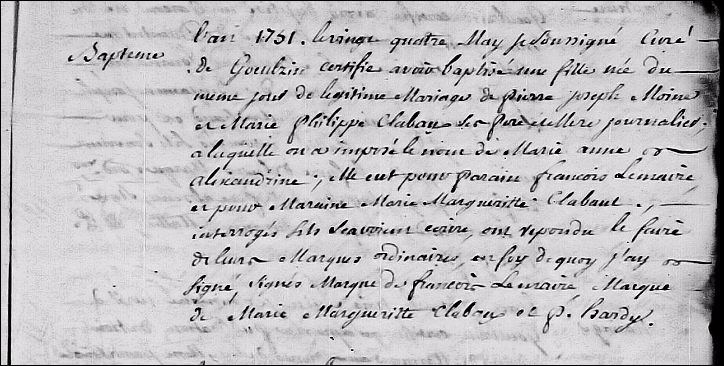 Bapteme
L'an 1751. le vingt quatre May je Soussigné Curé
de Goeulzin certifie avoir baptisé une fille née du
meme jour de legitime Mariage de Pierre joseph Moine
et Marie Philippe Clabau ses Pere et Mere journalier,
a laquelle on a imposé le nom de Marie anne
alexandrine, Elle eut pour Parain francois Lemaire
et pour Maraine Marie Margueritte Clabaut,
interrogés s'ils scavoient ecrire, ont repondu le faire
de leurs Marques ordinaires, en foy de quoy j'ay
signé, signés Marque de francois Lemaire Marque
de Marie Margueritte Clabau et P. hardy.